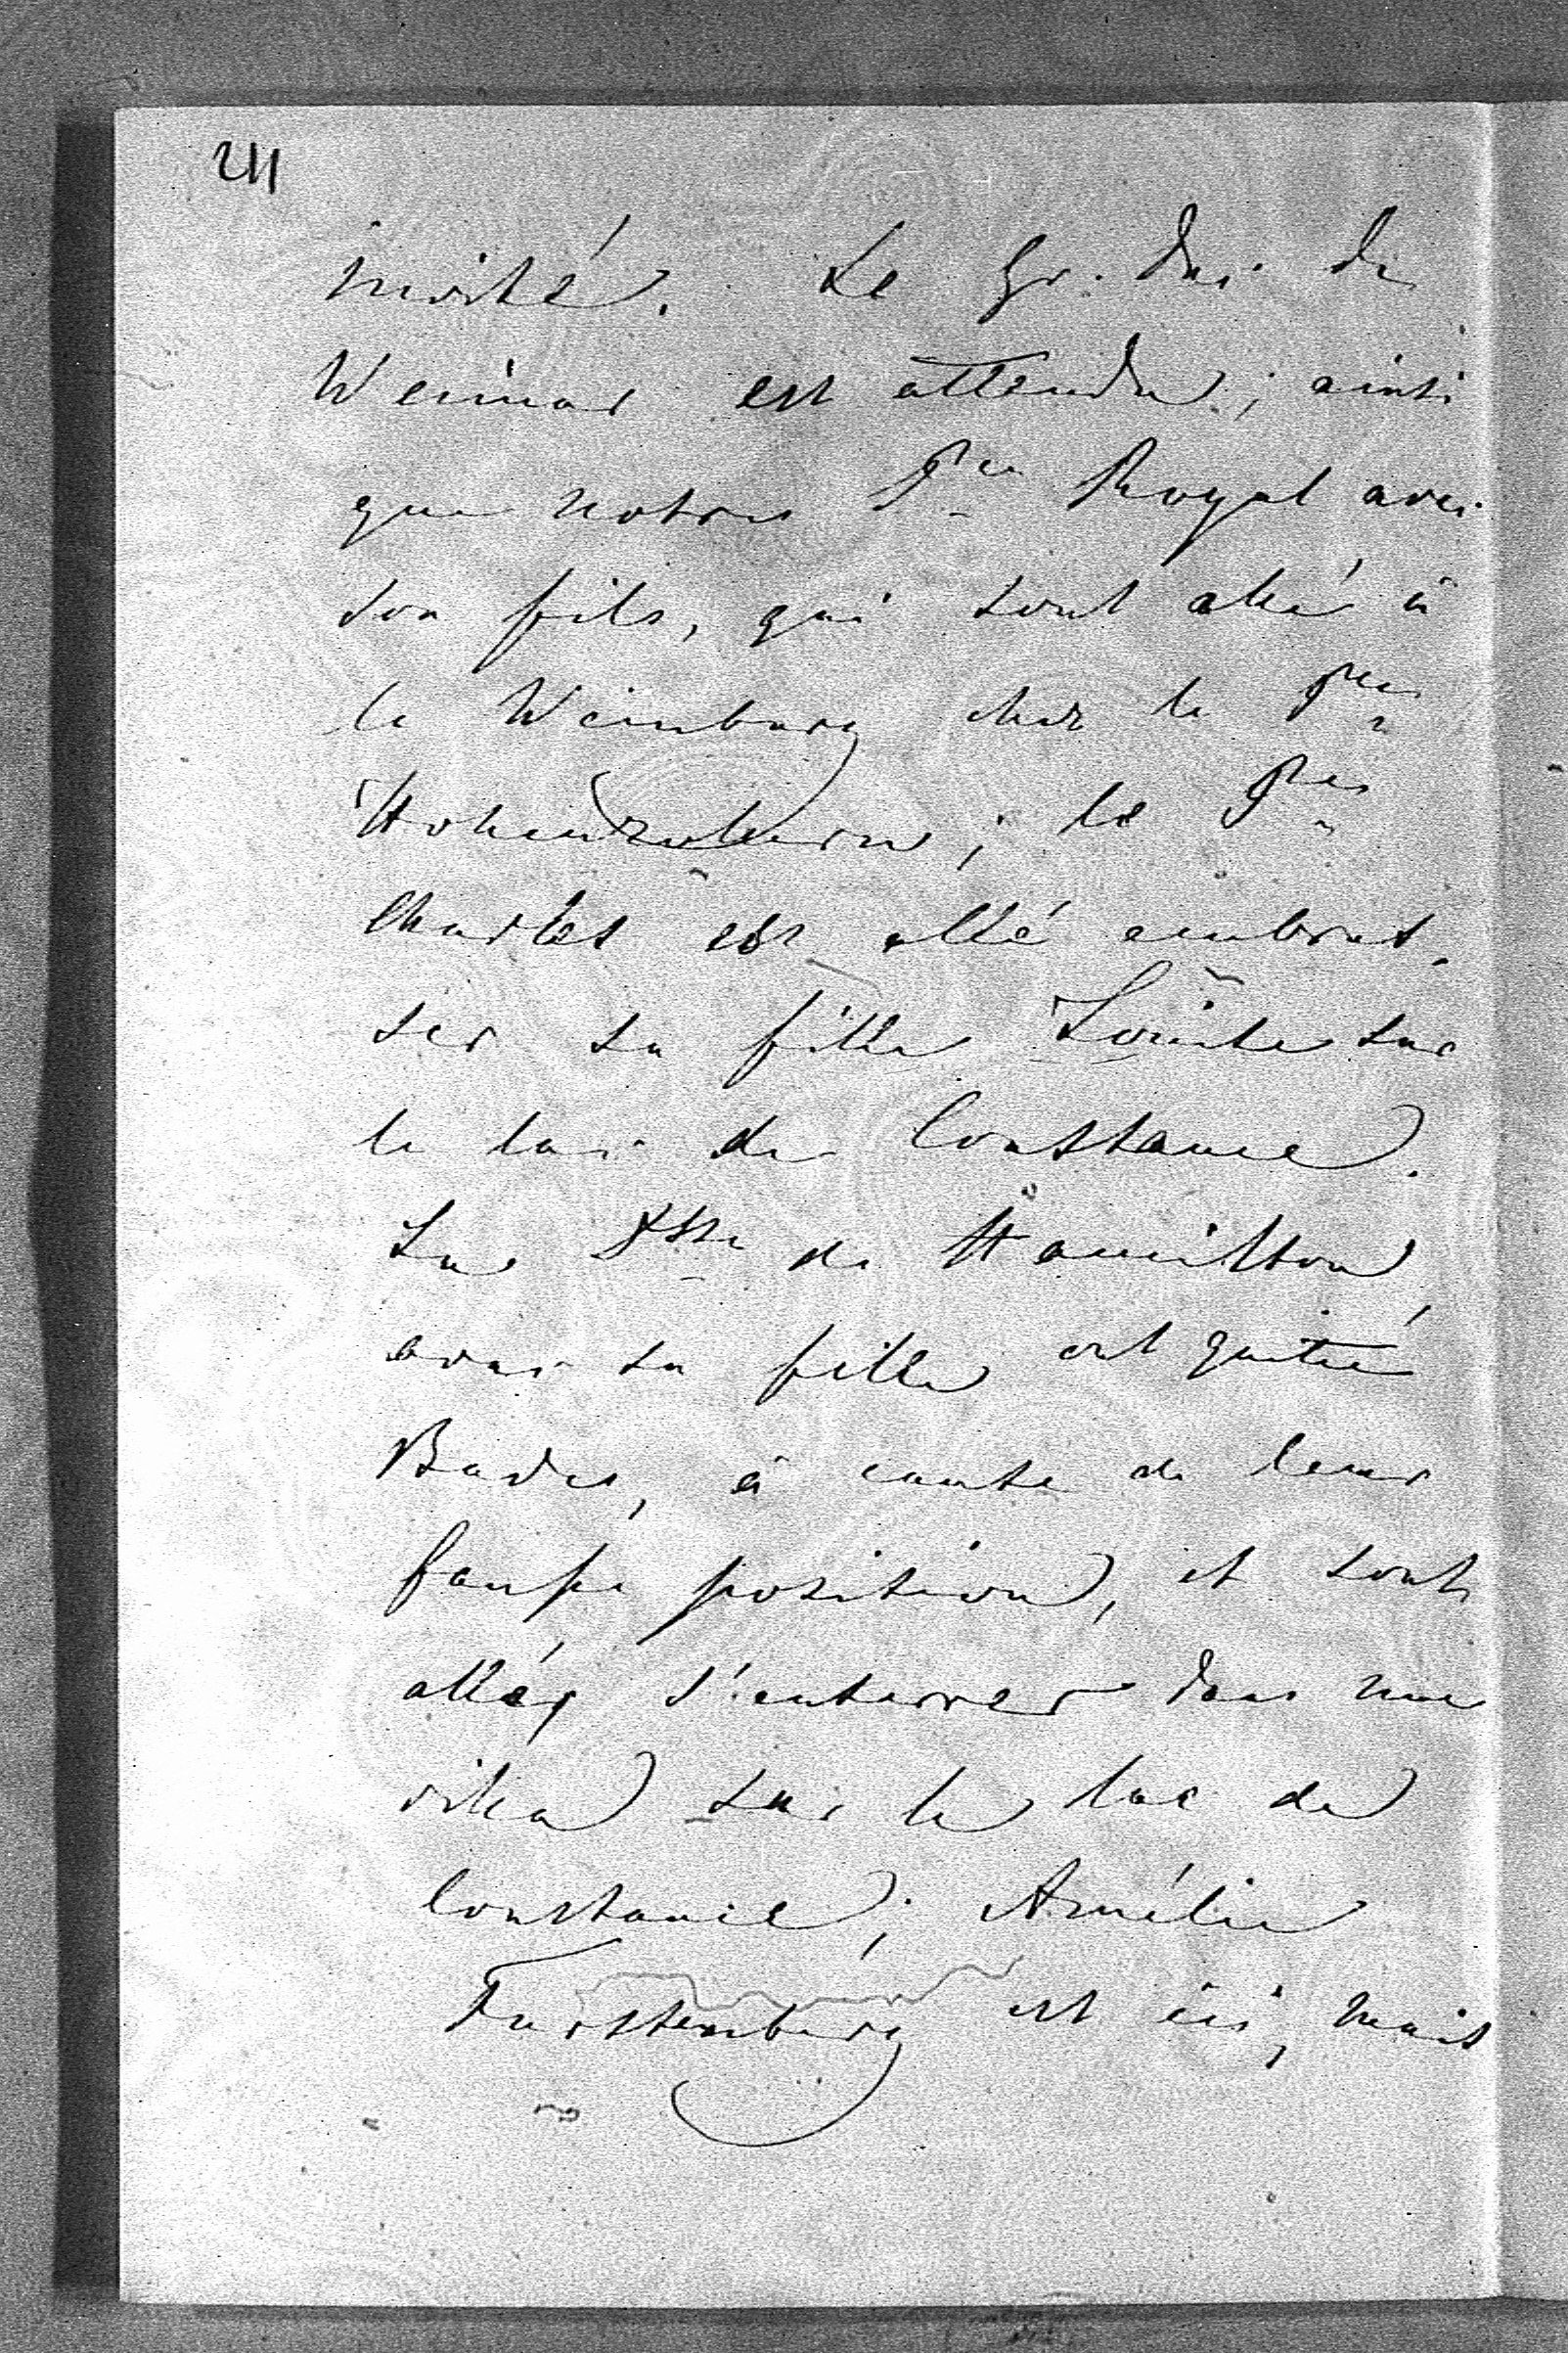 241
invité. Le Gr. Duc de
Weimar est attendu; ainsi
que notre Pce Royal avec
son fils, qui sont allé à
la Weinburg chez le Pce
Hohenzolern; le Pce
Charles est allé embras-
ser sa fille Louise sur
le lac de Constance.
La Dsse de Hamilton
avec sa fille ont quitté
Bade, à cause de leur
fausse position, et sont
allés s'enterrer dans une
villa sur le lac de
Constance; Amélie
Furstenberg est ici, mais